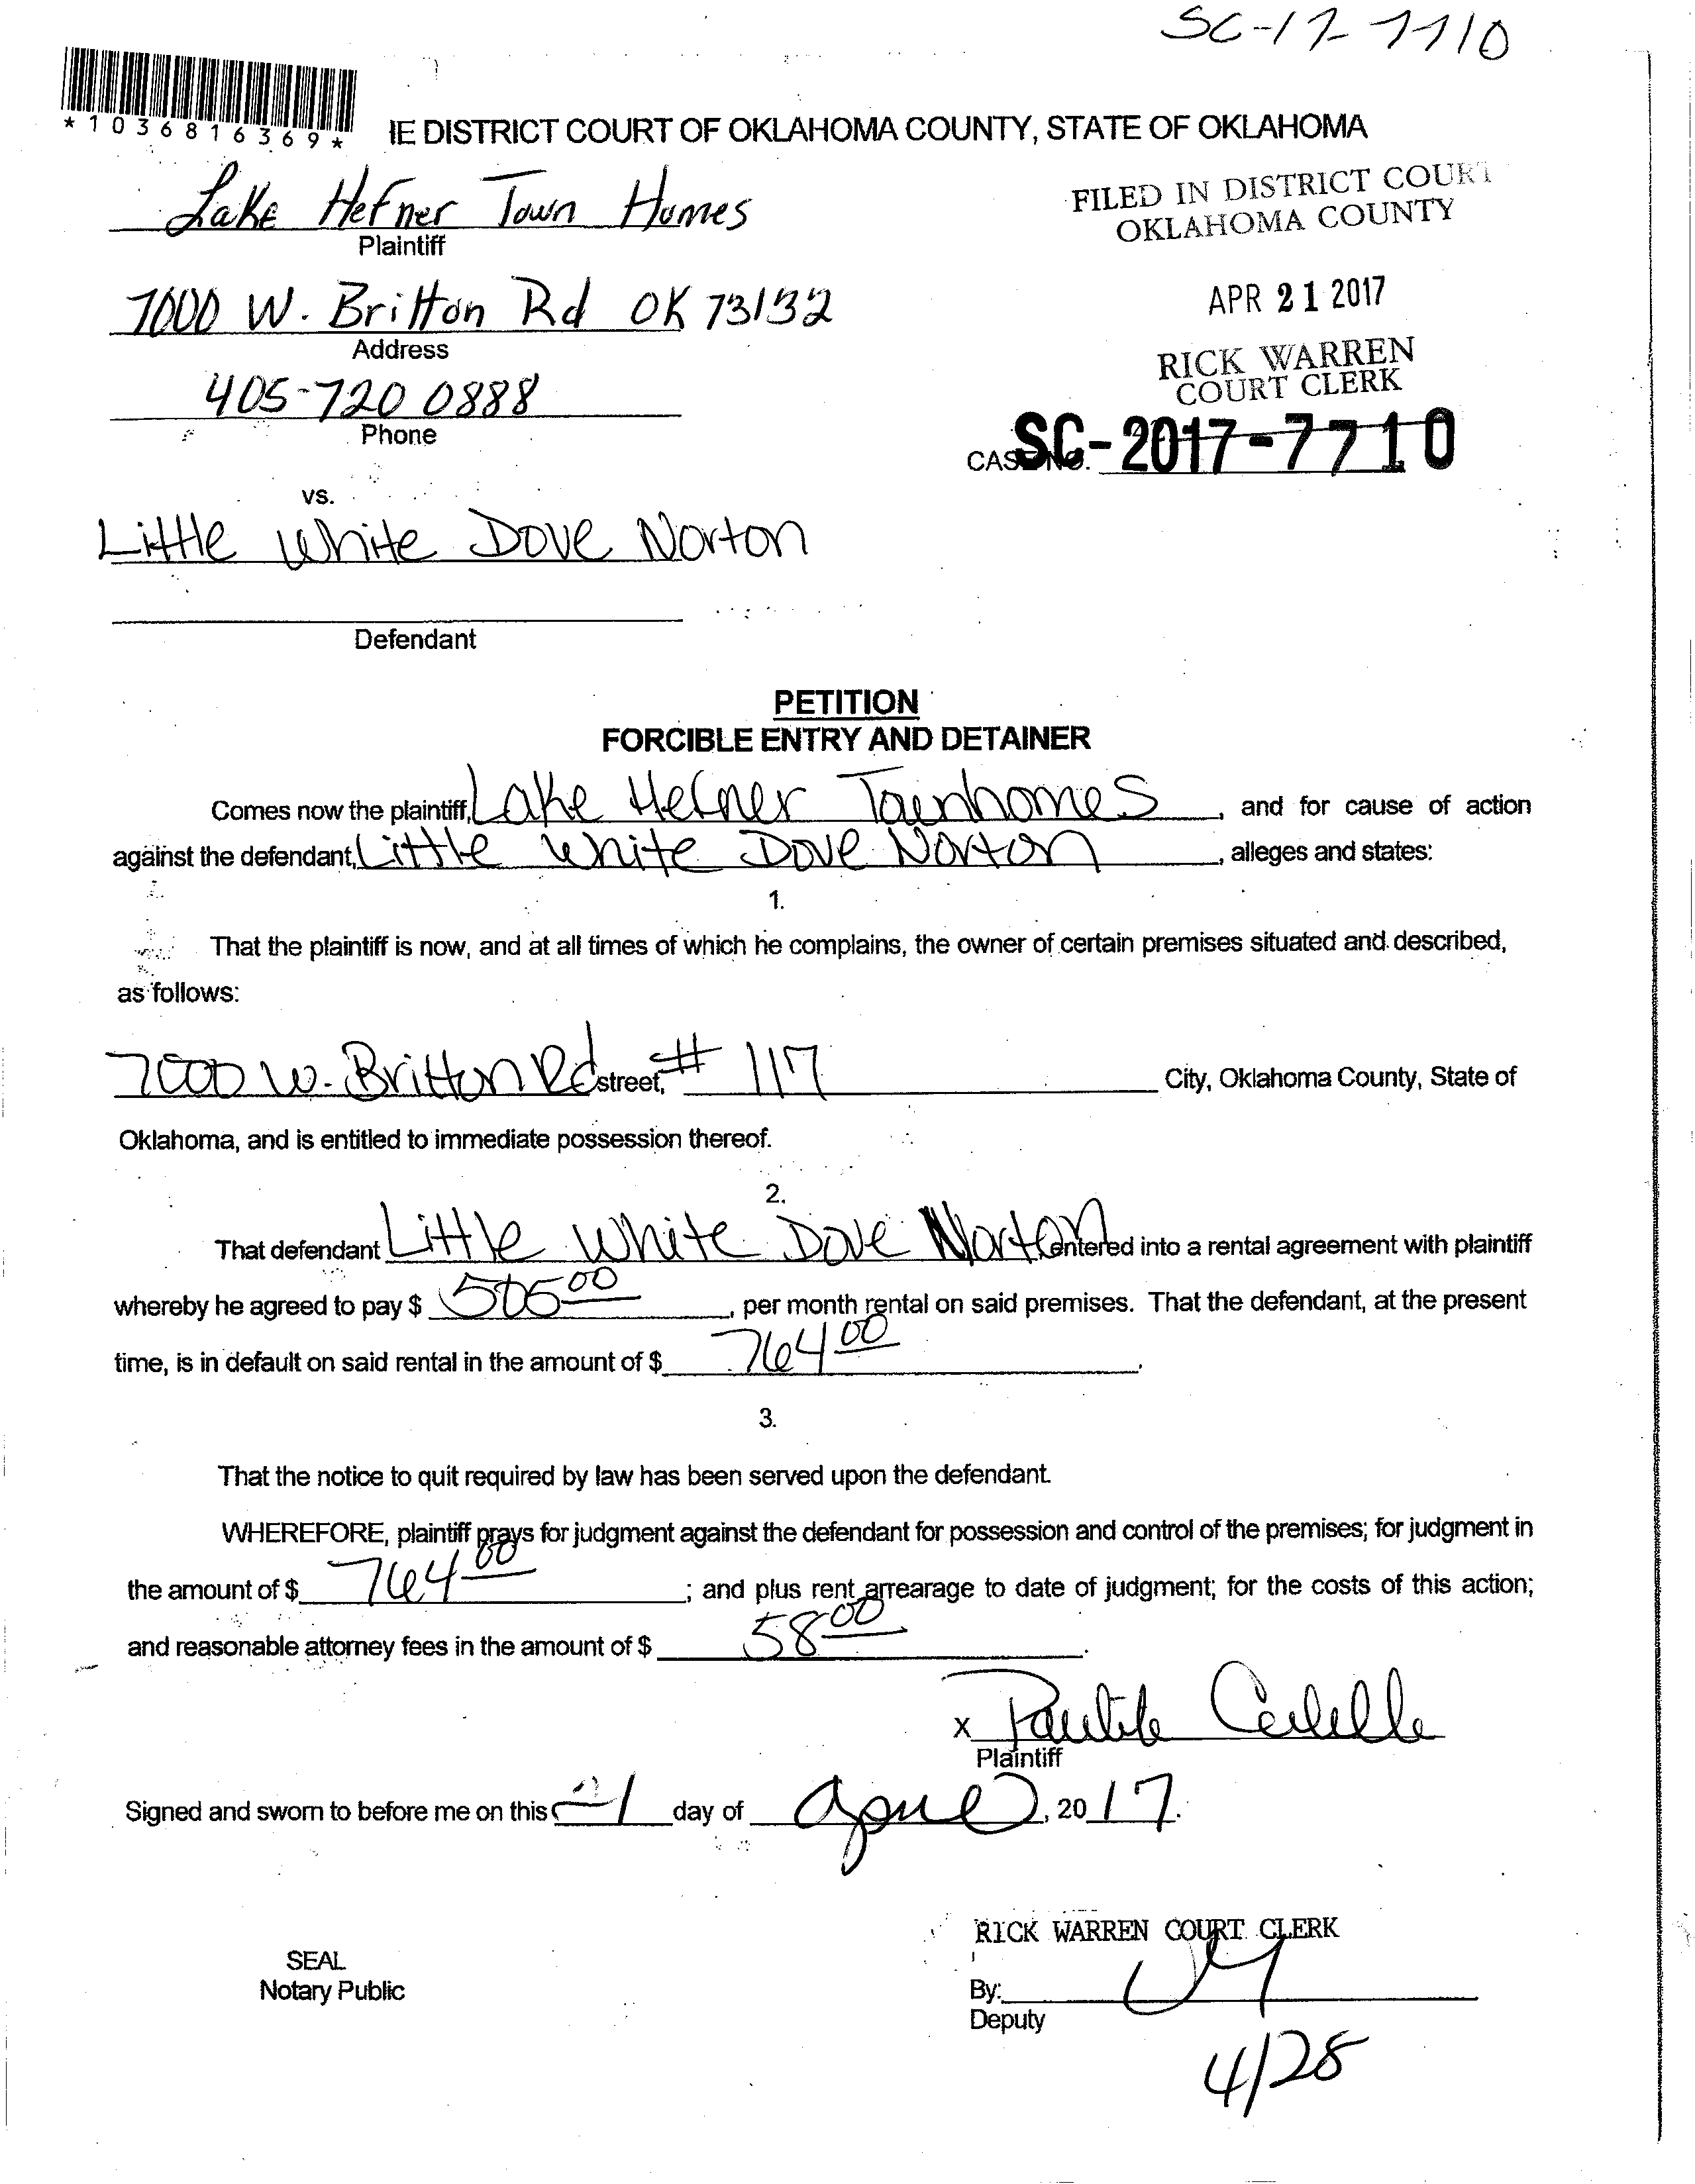 SC-17-7710
*1036816369*
IE DISTRICT COURT OF OKLAHOMA COUNTY, STATE OF OKLAHOMA
Lake Hefner Town Homes
Plaintiff
FILED IN DISTRICT COURT
OKLAHOMA COUNTY
7000 W. Britton Rd OK 73132
Address
APR 21 2017
405-720 0888
Phone
RICK WARREN
COURT CLERK
CASE NO. SC-2017-7710
vs.
Little White Dove Norton
Defendant
PETITION
FORCIBLE ENTRY AND DETAINER
Comes now the plaintiff, Lake Hefner Townhomes, and for cause of action
against the defendant, Little White Dove Norton, alleges and states:
1.
That the plaintiff is now, and at all times of which he complains, the owner of certain premises situated and described,
as follows:
7000 W. Britton Rd street, # 117 City, Oklahoma County, State of
Oklahoma, and is entitled to immediate possession thereof.
2.
That defendant Little White Dove Norton entered into a rental agreement with plaintiff
whereby he agreed to pay $ 505 00, per month rental on said premises. That the defendant, at the present
time, is in default on said rental in the amount of $ 764 00.
3.
That the notice to quit required by law has been served upon the defendant.
WHEREFORE, plaintiff prays for judgment against the defendant for possession and control of the premises; for judgment in
the amount of $ 764 00; and plus rent arrearage to date of judgment; for the costs of this action;
and reasonable attorney fees in the amount of $ 58 00.
x
Plaintiff
Signed and sworn to before me on this 21 day of April, 2017.
RICK WARREN COURT CLERK
SEAL
Notary Public
By:
Deputy
4/28